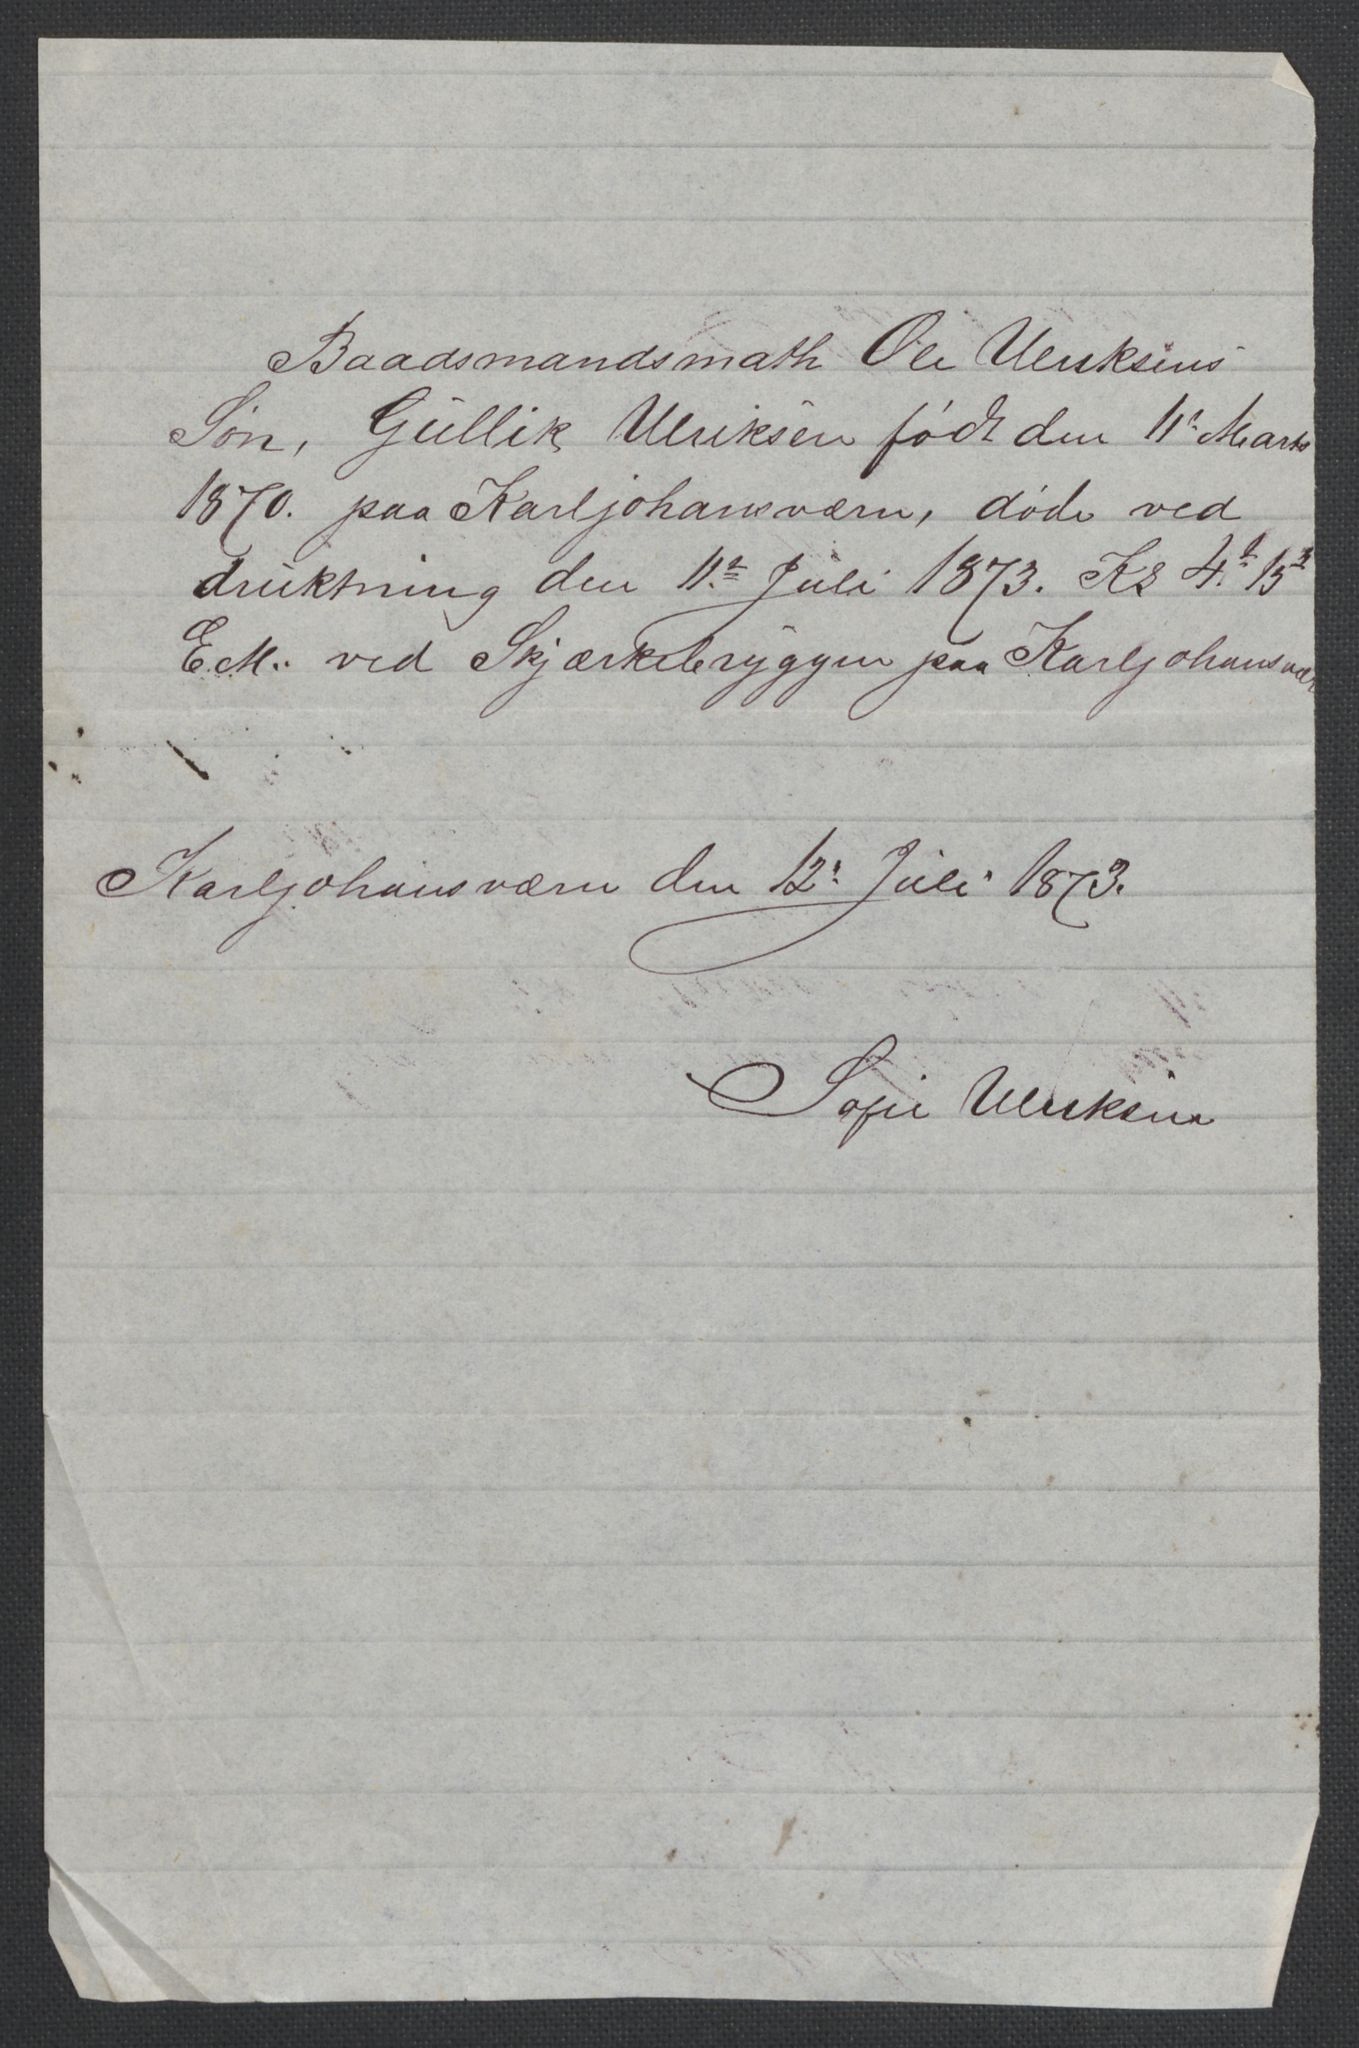 Baadsmandsmath Ole Ulriksens
Søn, Gullik Ulriksen født den 11te Marts
1870. paa Karljohansværn, døde ved
drukning den 11te Juli 1873. Kl 4t 15m
E.M. ved Skjærkebryggen paa Karljohansvær
Karljohansværn den 12te Juli 1873.
Sofie Ulriksen